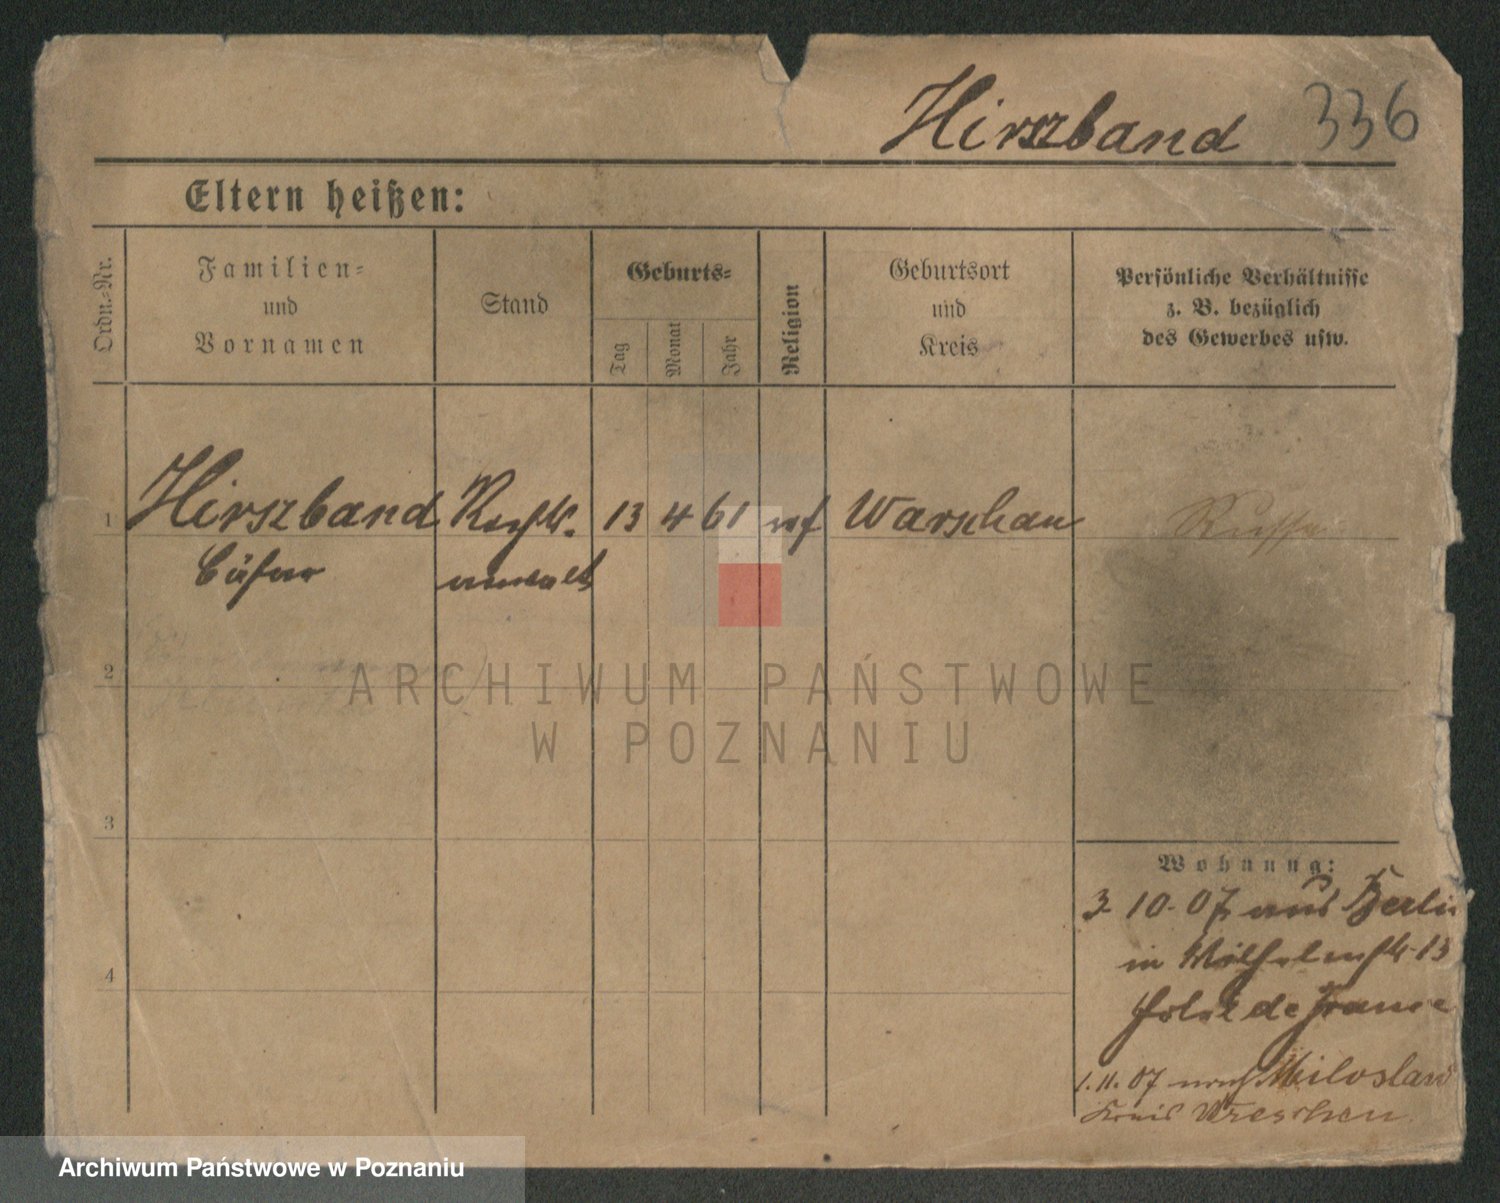 Hirszband 336
Eltern heißen:
Ordn.-Nr.
Familien-
und
Vornamen
Stand
Geburts-
Tag
Monat
Jahr
Religion
Geburtsort
und
Kreis
Persönliche Verhältnisse
z. B. bezüglich
des Gewerbes usw.
1 Hirszband Rechts- 13 4 61 Warschau Russe
anwalt
2
3
4
Wohnung:
3.10.07 aus Berlin
in Wilhelmstr 13
Hotel de France
1.11.07 nach Miloslaw
Kreis Wreschen
ARCHIWUM PAŃSTWOWE
W POZNANIU
Archiwum Państwowe w Poznaniu